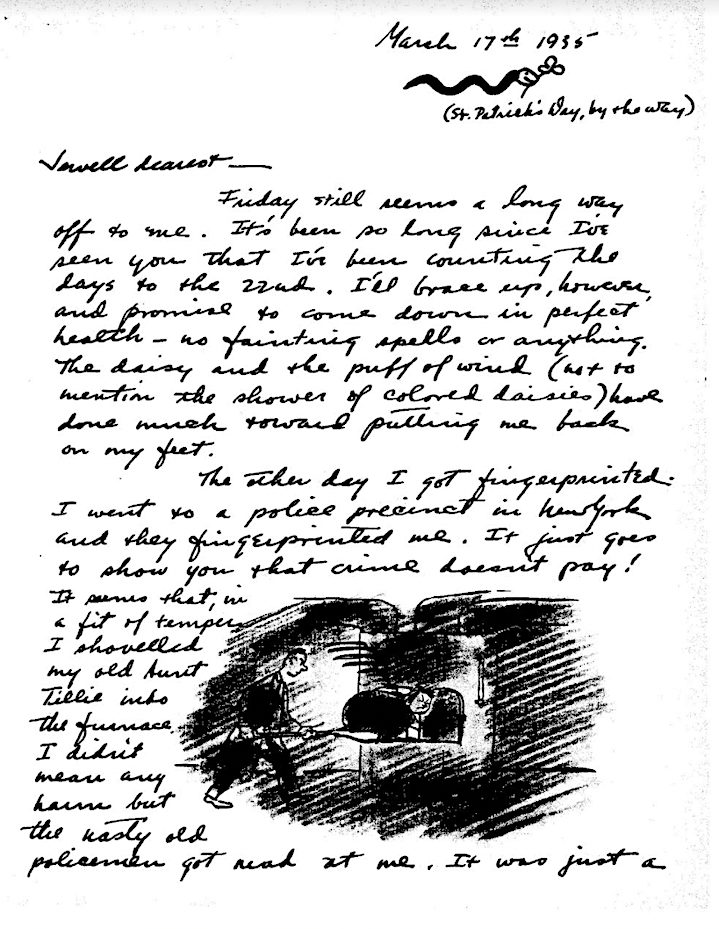 March 17th 1935
(St. Patrick's Day, by the way)
Jewell dearest —
Friday still seems a long way
off to me. It's been so long since I've
seen you that I've been counting the
days to the 22nd. I'll brace up, however,
and promise to come down in perfect
health – no fainting spells or anything.
The daisy and the puff of wind (not to
mention the shower of colored daisies) have
done much toward putting me back
on my feet.
The other day I got fingerprinted.
I went to a police precinct in New York
and they fingerprinted me. It just goes
to show you that crime doesn't pay!
It seems that, in
a fit of temper,
I shovelled
my old Aunt
Tillie into
the furnace.
I didn't
mean any
harm but
the nasty old
policemen got mad at me. It was just a